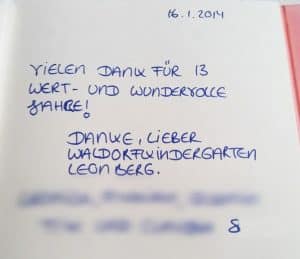 16.1.2014
VIELEN DANK FÜR 13
WERT- UND WUNDERVOLLE
JAHRE!
DANKE, LIEBER
WALDORFKINDERGARTEN
LEONBERG.
&